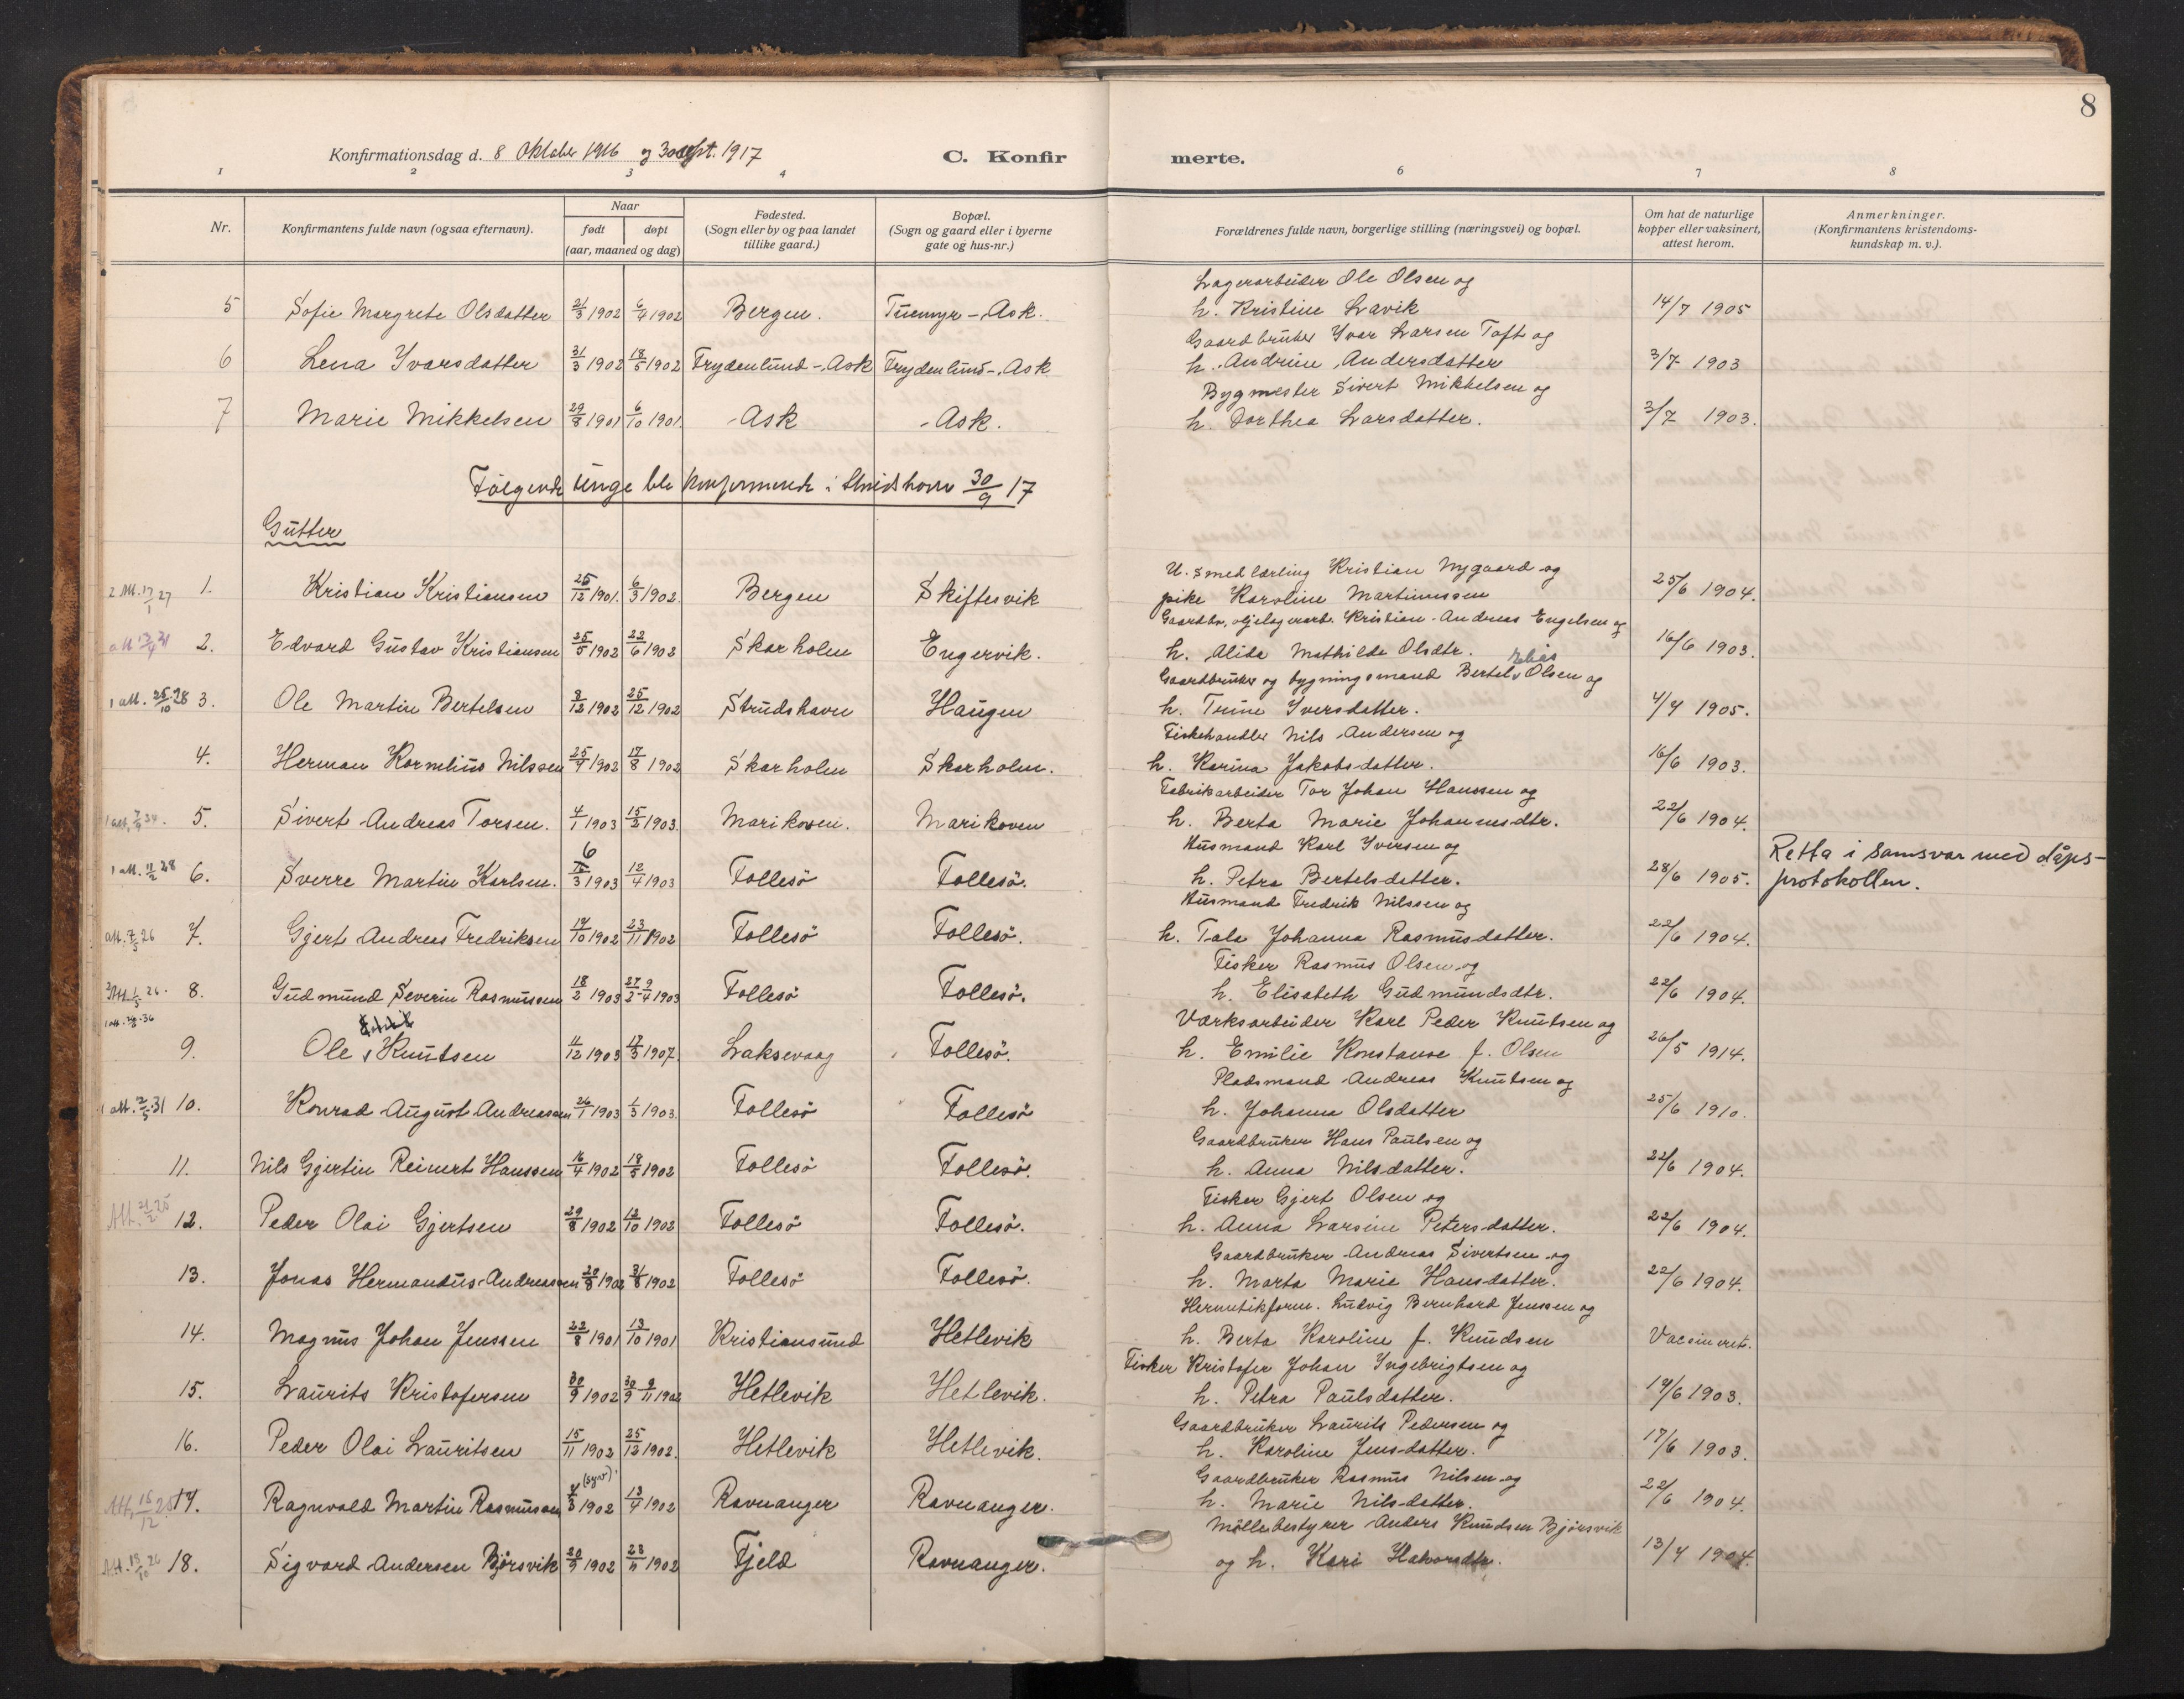 8
Konfirmationsdag d. 8 Oktober 1916 og 30 sept. 1917
C. Konfir merte.
1 2 3 4 6 7 8
Nr.
Konfirmantens fulde navn (ogsaa efternavn).
Naar
født døpt
(aar, maaned og dag)
Fødested.
(Sogn eller by og paa landet
tillike gaard.)
Bopæl.
(Sogn og gaard eller i byerne
gate og hus-nr.)
Forældrenes fulde navn, borgerlige stilling (næringsvei) og bopæl.
Om hat de naturlige
kopper eller vaksinert,
attest herom.
Anmerkninger.
(Konfirmantens kristendoms-
kundskap m. v.).
Lagerarbeider Ole Olsen og
5 Sofie Margrete Olsdatter 21/3 1902 6/4 1902 Bergen. Tuemyr - Ask. h. Kristine Lavik 14/7 1905
Gaardbruker Ivar Larsen Toft og
6 Lena Ivarsdatter 31/3 1902 18/5 1902 Frydenlund - Ask Frydenlund - Ask h. Andrine Andersdatter 3/7 1903
Bygmester Sivert Mikkelsen og
7 Marie Mikkelsen 29/8 1901 6/10 1901. Ask Ask. h. Dorthea Larsdatter. 3/7 1903.
Følgende unge ble konfirmerte i Strudshavn 30/9 17
Gutter
U. smedlærling Kristian Nygaard og
2 Att. 17/1 27 1. Kristian Kristiansen 25/12 1901. 6/3 1902. Bergen Skiftesvik pike Karoline Martinussen 25/6 1904.
Gaardbr., oljelagerarb. Kristian Andreas Engelsen og
2. Edvard Gustav Kristiansen 25/5 1902 22/6 1902 Skarholm Engervik. h. Alida Mathilde Olsdtr. 16/6 1903.
Gaardbruker og bygningsmand Bertel Elias Olsen og
1 att. 25/10 28 3. Ole Martin Bertelsen 8/12 1902 25/12 1902 Strudshavn Haugen h. Trine Iversdatter. 4/4 1905.
Fiskehandler Nils Andersen og
4. Herman Kornelius Nilssen 25/4 1902 17/8 1902 Skarholm Skarholm. h. Karina Jakobsdatter. 16/6 1903.
Fabrikarbeider Tor Johan Hanssen og
5. Sivert Andreas Torsen. 4/1 1903 15/2 1903. Marikoven. Marikoven h. Berta Marie Johannesdtr. 22/6 1904.
Husmand Karl Iversen og
1 att. 11/2 28 6. Sverre Martin Karlsen. 6/3 1903 12/4 1903 Follesö Follesö. h. Petra Bertelsdatter. 28/6 1905. Retta i samsvar med dåps-
protokollen.
Husmand Fredrik Nilssen og
att. 7/5 26 7. Gjert Andreas Fredriksen 17/10 1902 23/11 1902 Follesö Follesö. h. Tala Johanna Rasmusdatter. 22/6 1904.
Fisker Rasmus Olsen og
8. Gudmund Severin Rasmussen 18/2 1903 27/2 - 9/4 1903 Follesö Follesö. h. Elisabeth Gudmundsdtr. 22/6 1904.
Værksarbeider Karl Peder Knutsen og
9. Ole Knutsen 11/12 1903 17/3 1907. Laksevaag Follesö. h. Emilie Konstanse f. Olsen 26/5 1914.
Pladsmand Andreas Knutsen og
1 att. 2/5 31 10. Konrad August Andreassen 26/1 1903 1/3 1903. Follesö Follesö h. Johanna Olsdatter 25/6 1910.
Gaardbruker Hans Paulsen og
11. Nils Gjertin Reinert Hanssen 16/4 1902 19/5 1902 Follesö Follesö. h. Anna Nilsdatter. 22/6 1904.
Fisker Gjert Olsen og
Att. 21/2 25 12. Peder Olai Gjertsen 29/8 1902 12/10 1902 Follesö Follesö. h. Anna Larsine Petersdatter. 22/6 1904.
Gaardbruker Andreas Sivertsen og
13. Jonas Hermandus Andreassen 20/8 1902 31/8 1902 Follesö Follesö. h. Marta Marie Hansdatter. 22/6 1904.
Hermetikform. Ludvig Bernhard Jenssen og
14. Magnus Johan Jenssen 22/8 1901 13/10 1901 Kristiansund Hetlevik h. Berta Karoline f. Knudsen Vaccineret.
Fisker Kristofer Johan Ingebrigtsen og
15. Laurits Kristofersen 30/9 1902 30/9 9/11 1902 Hetlevik Hetlevik. h. Petra Paulsdatter. 17/6 1903.
Gaardbruker Laurits Pedersen og
16. Peder Olai Lauritsen 15/11 1902 25/12 1902. Hetlevik Hetlevik. h. Karoline Jensdatter. 17/6 1903.
Gaardbruker Rasmus Nilsen og
Att. 15/12 25 17. Ragnvald Martin Rasmussen (syv) 7/3 1902 13/4 1902 Ravnanger Ravnanger. h. Marie Nilsdatter. 22/6 1904.
Möllebestyrer Anders Knudsen Bjørsvik
Att. 18/10 26 18. Sigvard Andersen Bjørsvik 20/9 1902 23/11 1902 Fjeld Ravnanger. og h. Kari Halvorsdtr. 13/4 1904.